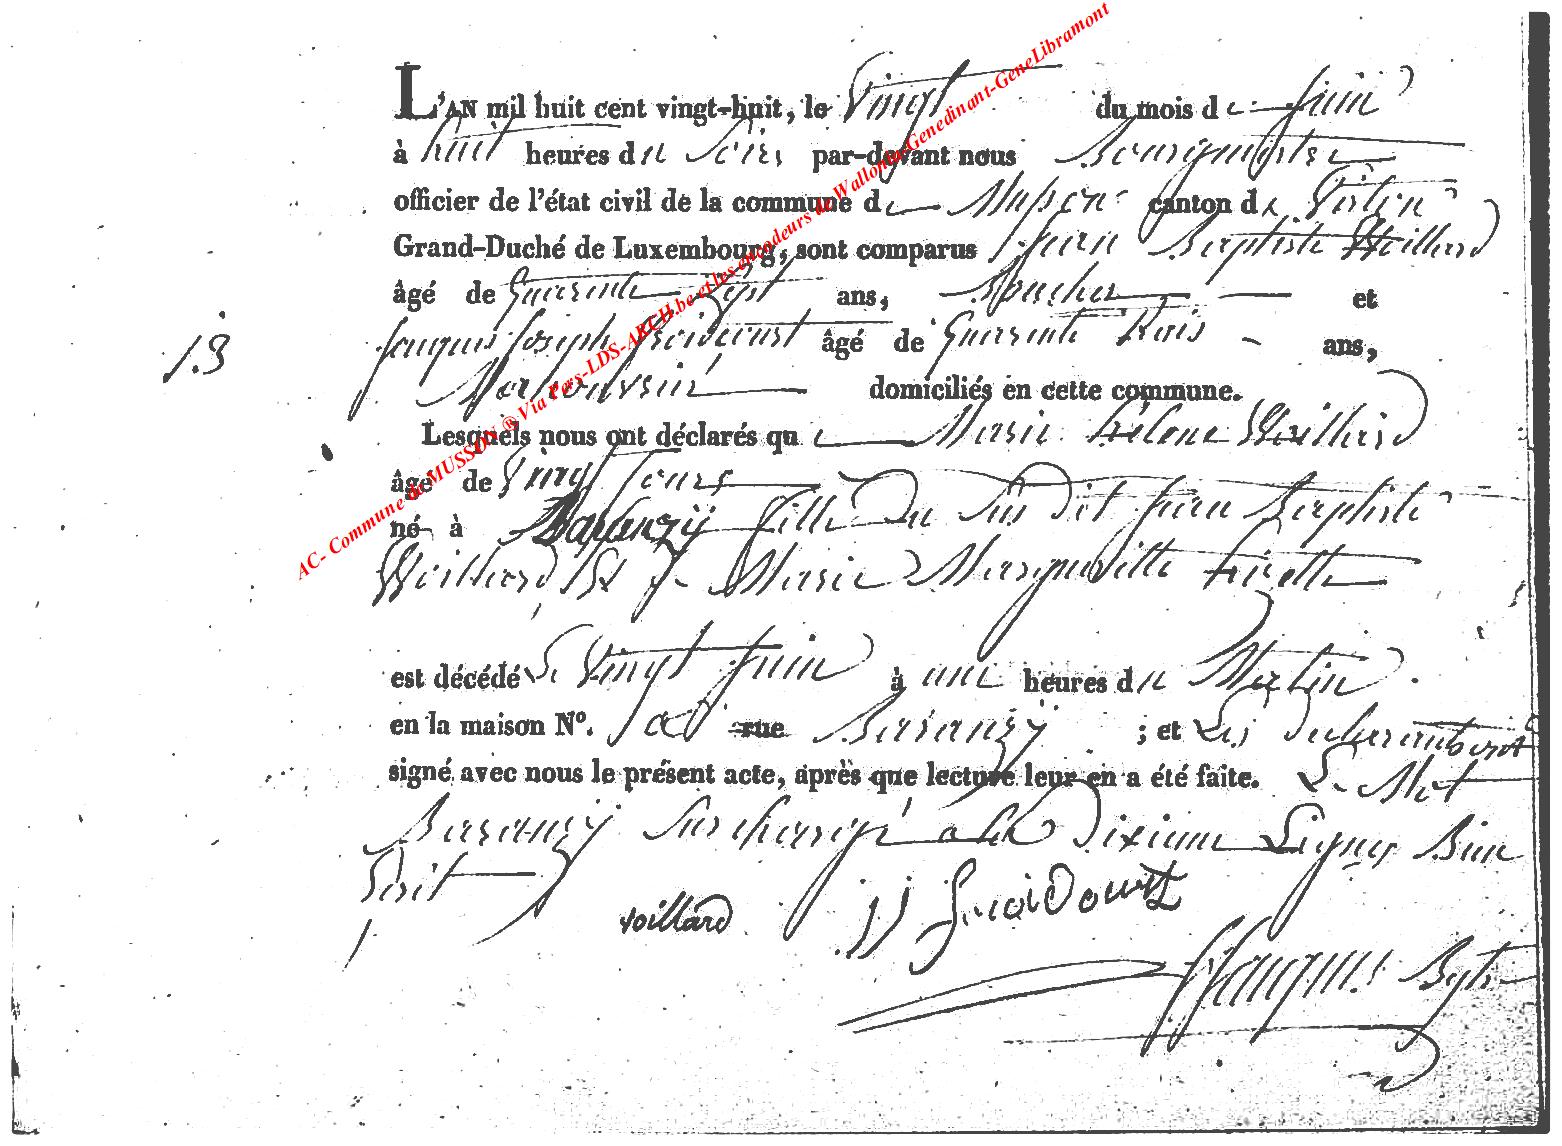 L'AN mil huit cent vingt-huit, le Vingt du mois de Juin
à huit heures du Soir par-devant nous Bourgmestre
officier de l'état civil de la commune de Musson canton de Virton
Grand-Duché de Luxembourg, sont comparus Jean Baptiste Woillard
âgé de Quarente Sept ans, et
Jacques Joseph Froidcourt âgé de Quarente trois ans,
domiciliés en cette commune.
Lesquels nous ont déclarés que Marie Hélène Woillard
âgé de Vingt Jours
né à Baranzÿ fille du Sus dit Jean Baptiste
Woillard Et de Marie Margueritte
est décédé Le Vingt Juin à une heures du Matin
en la maison N°. rue Baranzÿ ; et Les
signé avec nous le présent acte, après que lecture leur en a été faite. Le Mot
Baranzÿ Surchargé a la Dixieme Ligne Bien
Ecrit
13
voillard JJ froidcourt
Jacques
AC- Commune de MUSSON ® Via Pers-LDS-ARCH.be et les encodeurs de Wallonia-Genedinant-GeneLibramont